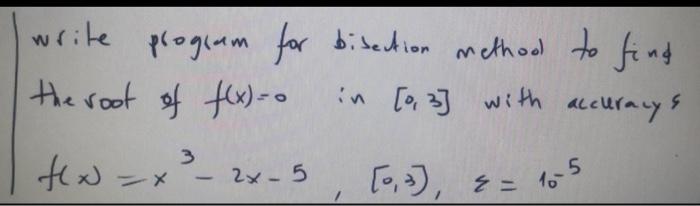 write program for bisection method to find
the root of f(x)=0 in [0, 3] with accuracy s
f(x) = x³ - 2x - 5 , [0,3), ε = 10⁻⁵